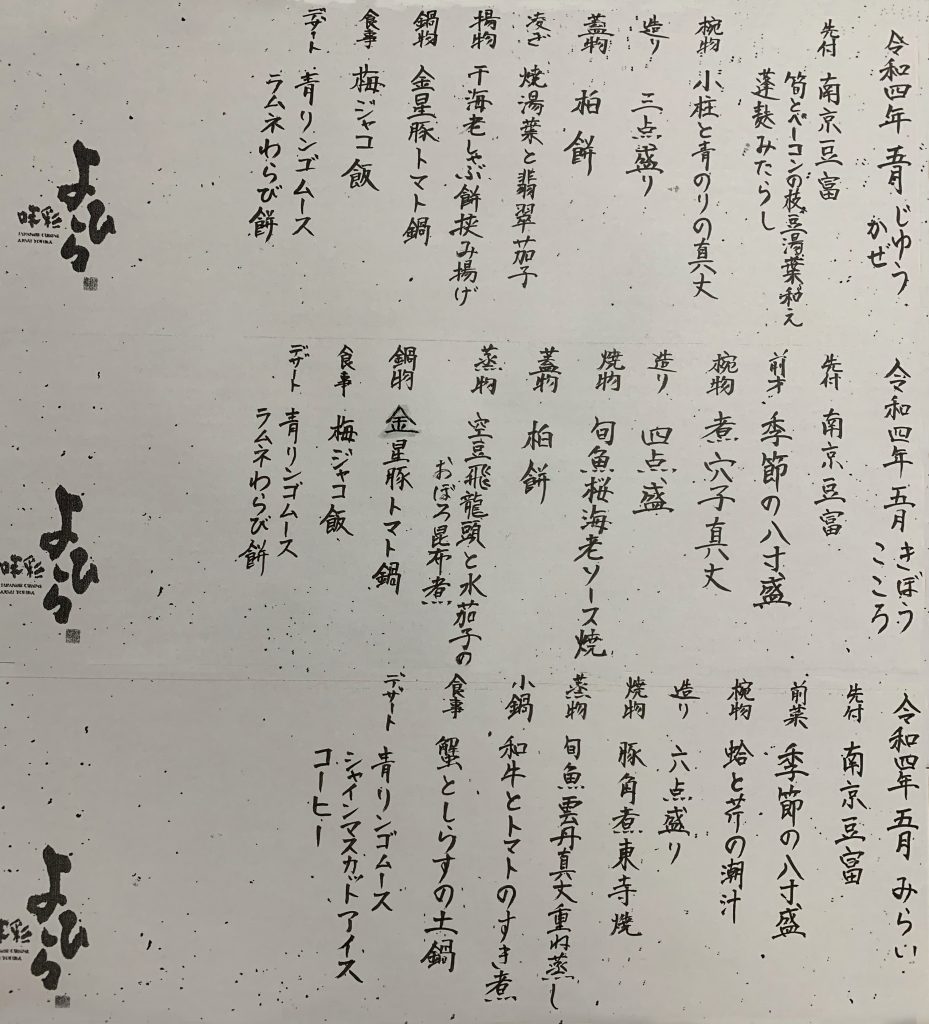 令和四年 五月 じゆう
かぜ
先付 南京豆富
筍とベーコンの枝豆湯葉和え
蓬麩みたらし
椀物 小柱と青のりの真丈
造り 三点盛り
蓋物 柏餅
凌ぎ 焼湯葉と翡翠茄子
揚物 干海老しんぶ餅挟み揚げ
鍋物 金星豚トマト鍋
食事 梅ジャコ飯
デザート 青リンゴムース
ラムネわらび餅
よひら
JAPANESE CUISINE
令和四年 五月 きぼう
こころ
先付 南京豆富
前才 季節の八寸盛
椀物 煮穴子真丈
造り 四点盛
焼物 旬魚桜海老ソース焼
蓋物 柏餅
蒸物 空豆飛龍頭と水茄子の
おぼろ昆布煮
鍋物 金星豚トマト鍋
食事 梅ジャコ飯
デザート 青リンゴムース
ラムネわらび餅
よひら
JAPANESE CUISINE
令和四年 五月 みらい
先付 南京豆富
前菜 季節の八寸盛
椀物 蛤と芹の潮汁
造り 六点盛り
焼物 豚角煮東寺焼
蒸物 旬魚雲丹真丈重ね蒸し
小鍋 和牛とトマトのすき煮
食事 蟹としらすの土鍋
デザート 青リンゴムース
シャインマスカットアイス
コーヒー
よひら